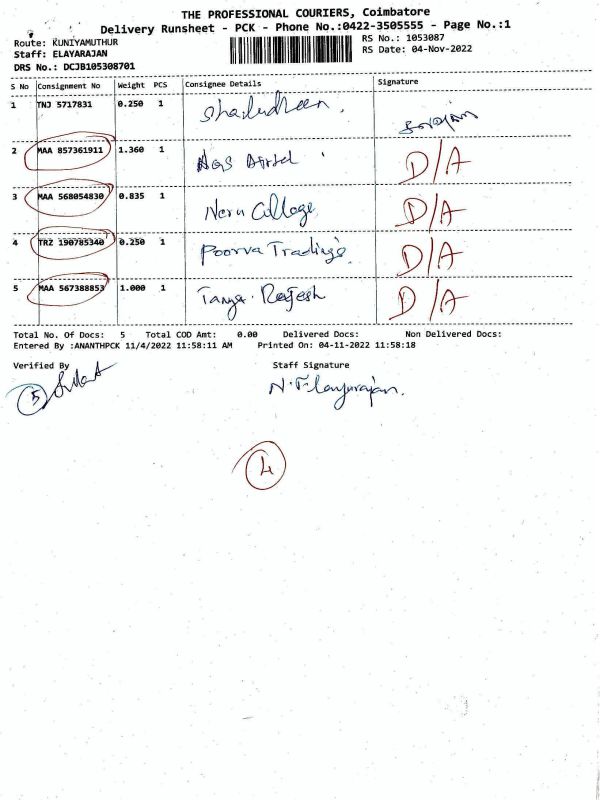 THE PROFESSIONAL COURIERS, Coimbatore
Delivery Runsheet - PCK - Phone No.:0422-3505555 - Page No.:1
Route: KUNIYAMUTHUR
RS No.: 1053087
Staff: ELAYARAJAN
RS Date: 04-Nov-2022
DRS No.: DCJB105308701
S No Consignment No Weight PCS Consignee Details Signature
1 TNJ 5717831 0.250 1
2 MAA 857361911 1.360 1 D/A
3 MAA 568054830 0.835 1 Neru College D/A
4 TRZ 190785340 0.250 1 Poorva Tradings D/A
5 MAA 567388853 1.000 1 Tanya. Rajesh D/A
Total No. Of Docs: 5 Total COD Amt: 0.00 Delivered Docs: Non Delivered Docs:
Entered By :ANANTHPCK 11/4/2022 11:58:11 AM Printed On: 04-11-2022 11:58:18
Verified By Staff Signature
5 N. Elayarajan.
4